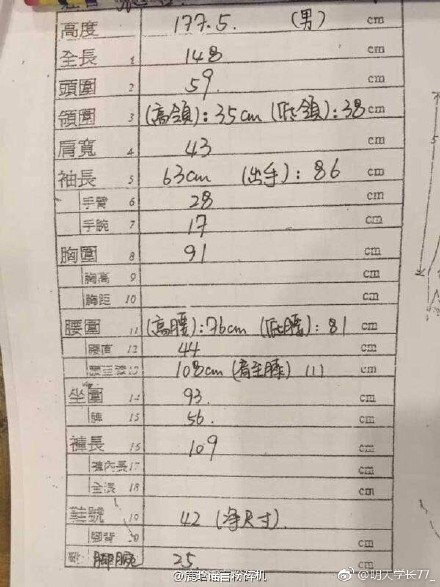 高度 177.5. (男) cm
全長 1 148 cm
頭圍 2 59. cm
領圍 3 (高領):35cm (低領):38 cm
肩寬 4 43 cm
袖長 5 63cm (出手):86 cm
手臂 6 28 cm
手腕 7 17 cm
胸圍 8 91 cm
胸高 9 cm
胸距 10 cm
腰圍 11 (高腰):76cm (低腰):81 cm
腰直 12 44 cm
108cm 111 cm
坐圍 14 93. cm
15 56. cm
褲長 16 109 cm
褲內長 17 cm
全浪 18 cm
鞋號 19 42 (淨尺寸). cm
腳背 20 cm
腳腕 25 cm
@明大学长77